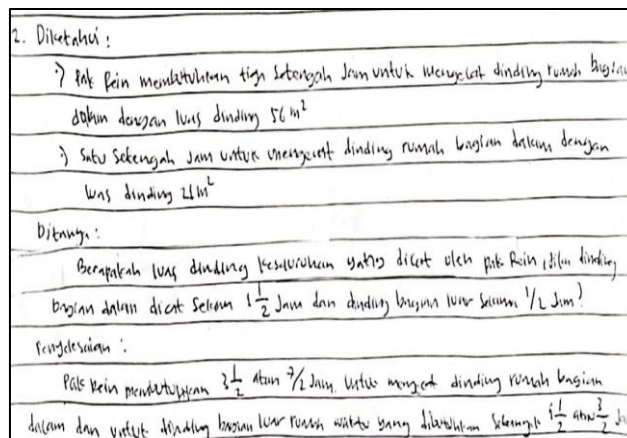 2. Diketahui :
:) Pak Rein membutuhkan tiga setengah Jam untuk mengecat dinding rumah bagian
dalam dengan luas dinding 56 m²
:) Satu setengah Jam untuk mengecat dinding rumah bagian dalam dengan
luas dinding 21 m²
Ditanya :
Berapakah luas dinding keseluruhan yang dicat oleh pak Rein, jika dinding
bagian dalam dicat selama 1 1/2 Jam dan dinding bagian luar selama 1/2 Jam?
Penyelesaian :
Pak Rein membutuhkan 3 1/2 atau 7/2 Jam. Untuk mengecat dinding rumah bagian
dalam dan untuk dinding bagian luar rumah waktu yang dibutuhkan sebanyak 1 1/2 atau 3/2 Ja